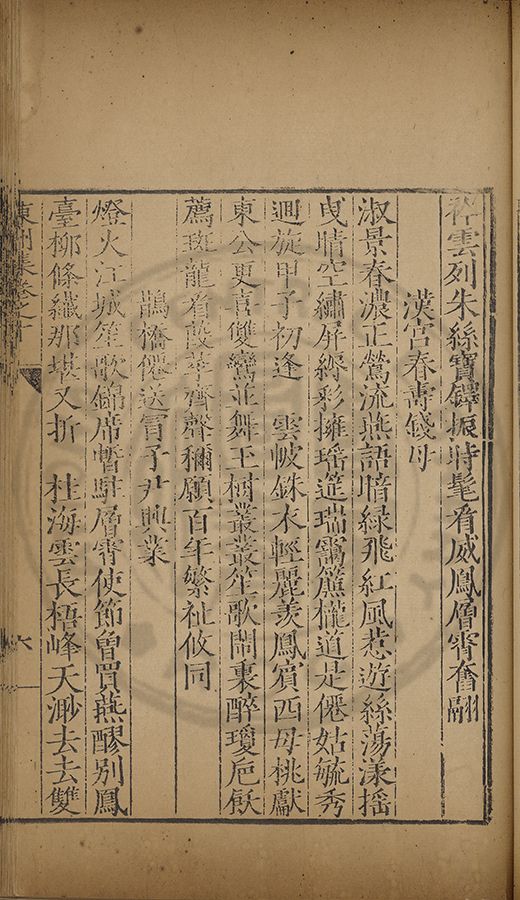 雲列朱絲寶鐸振時髦看威鳳層霄奮翮
漢宮春壽錢母
淑景春濃正鶯流燕語暗綠飛紅風惹遊絲蕩漾搖
曳晴空繡屏縟彩擁瑤筵瑞靄簾櫳道是僊姑毓秀
迴旋甲子初逢 雲帔銖衣輕麗羨鳳賓西母桃獻
東公更喜雙鸞並舞玉樹叢叢笙歌鬧裏醉瓊卮飫
薦斑龍看設萃齊聲稱願百年繁祉攸同
鵲橋僊送賓予尹興業
燈火江城笙歌錦席暫駐層霄使節曾買燕醪別鳳
臺柳條纖那堪又折 桂海雲長梧峰天渺去去雙
集卷之
六